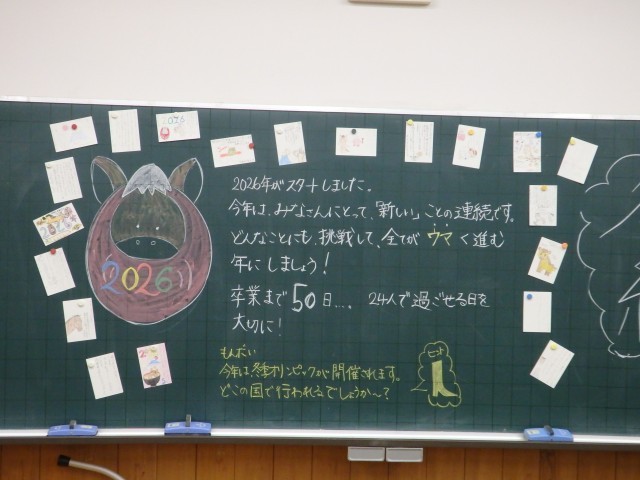 2026
2026
2026年がスタートしました。
今年は、みなさんにとって、「新しい」ことの連続です。
どんなことにも、挑戦して、全てが ウマ く進む
年にしましょう!
卒業まで 50 日…。 24人で過ごせる日を
大切に!
もんだい
今年は冬季オリンピックが開催されます。
どこの国で行われるでしょうか~?
ヒント